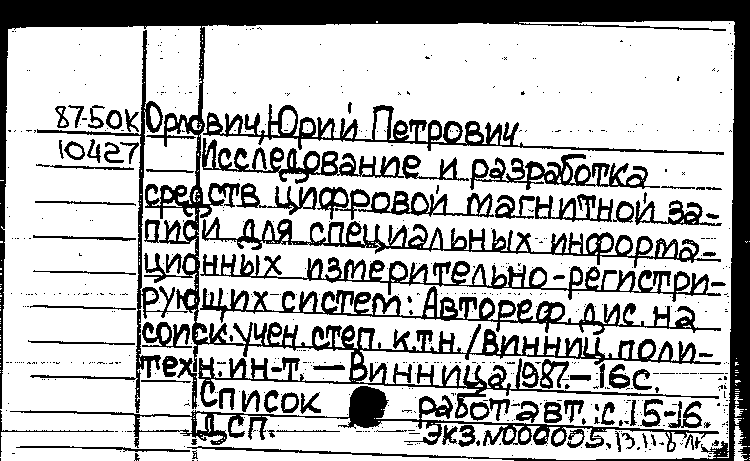 87-50К Орлович, Юрий Петрович.
10427 Исследование и разработка
средств цифровой магнитной за-
писи для специальных информа-
ционных измерительно-регистри-
рующих систем: Автореф. дис. на
соиск. учен. степ. к.т.н. / Винниц. поли-
техн. ин-т. — Винница, 1987. — 16 с.
Список работ авт.: с. 15-16.
ДСП. Экз. N000005. 13.11.8